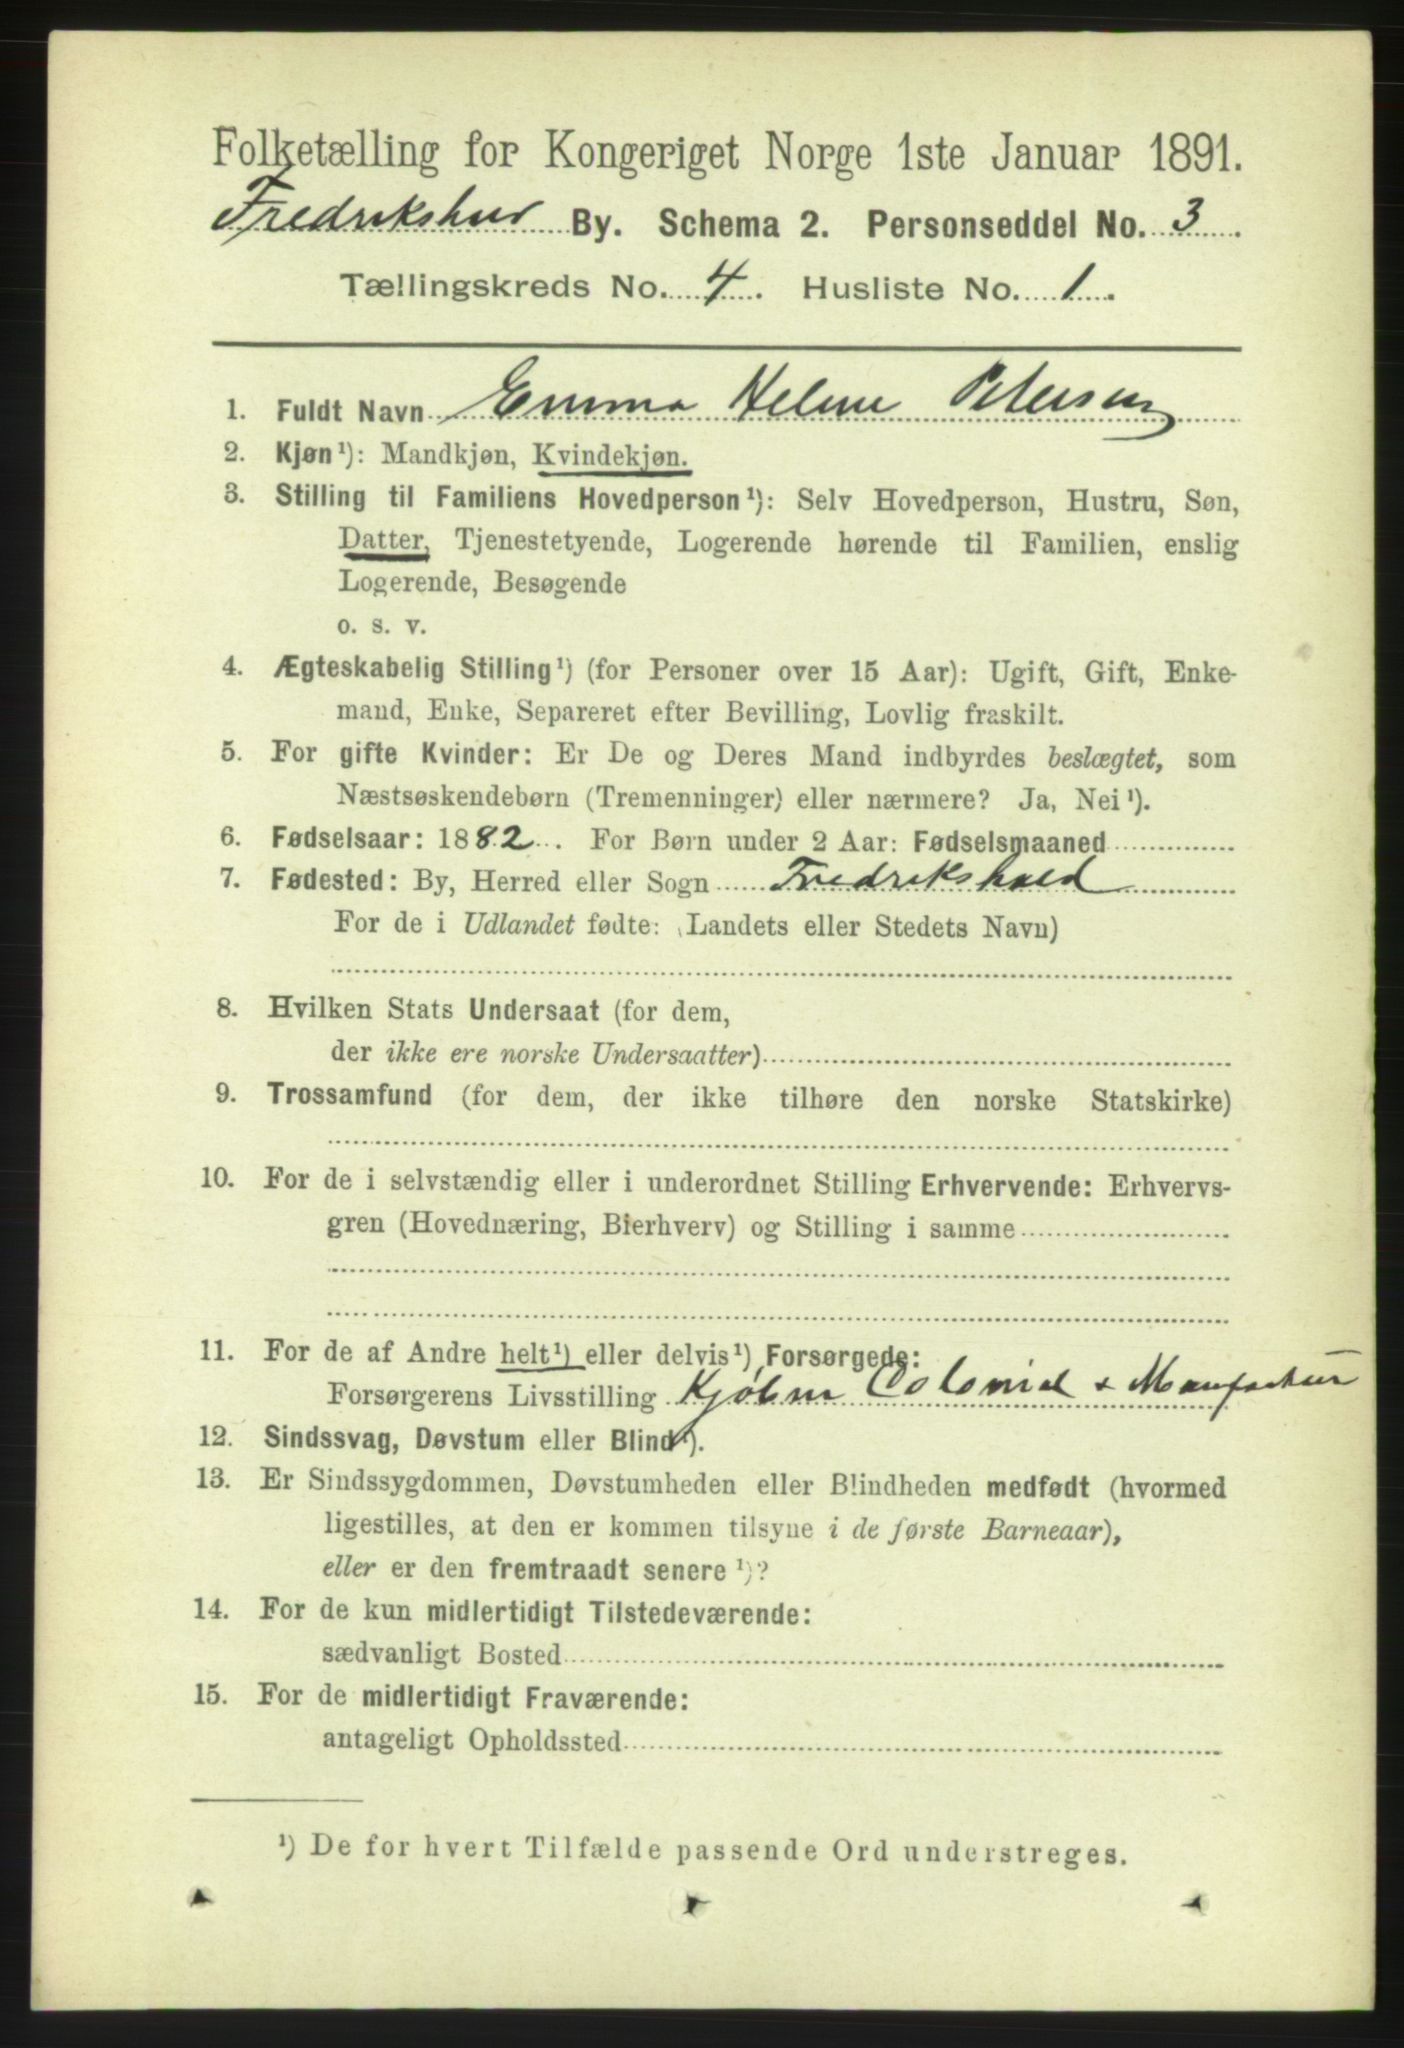 Folketælling for Kongeriget Norge 1ste Januar 1891.
By. Schema 2. Personseddel No. 3.
Tællingskreds No. 4. Husliste No. 1.
1. Fuldt Navn Emma Helene Petersen
2. Kjøn¹): Mandkjøn, Kvindekjøn.
3. Stilling til Familiens Hovedperson¹): Selv Hovedperson, Hustru, Søn,
Datter, Tjenestetyende, Logerende hørende til Familien, enslig
Logerende, Besøgende
o. s. v.
4. Ægteskabelig Stilling¹) (for Personer over 15 Aar): Ugift, Gift, Enke-
mand, Enke, Separeret efter Bevilling, Lovlig fraskilt.
5. For gifte Kvinder: Er De og Deres Mand indbyrdes beslægtet, som
Næstsøskendebørn (Tremenninger) eller nærmere? Ja, Nei¹).
6. Fødselsaar: 1882. For Børn under 2 Aar: Fødselsmaaned
7. Fødested: By, Herred eller Sogn Fredrikshald
For de i Udlandet fødte: (Landets eller Stedets Navn)
8. Hvilken Stats Undersaat (for dem,
der ikke ere norske Undersaatter)
9. Trossamfund (for dem, der ikke tilhøre den norske Statskirke)
10. For de i selvstændig eller i underordnet Stilling Erhvervende: Erhvervs-
gren (Hovednæring, Bierhverv) og Stilling i samme
11. For de af Andre helt¹) eller delvis¹) Forsørgede:
Forsørgerens Livsstilling Kjøbm Colonial + Manufactur
12. Sindssvag, Døvstum eller Blind¹).
13. Er Sindssygdommen, Døvstumheden eller Blindheden medfødt (hvormed
ligestilles, at den er kommen tilsyne i de første Barneaar),
eller er den fremtraadt senere¹)?
14. For de kun midlertidigt Tilstedeværende:
sædvanligt Bosted
15. For de midlertidigt Fraværende:
antageligt Opholdssted
¹) De for hvert Tilfælde passende Ord understreges.